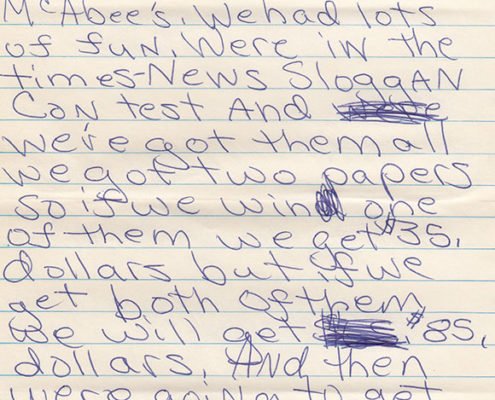 McAbee's. We had lots
of fun. Were in the
times-News SloggAN
CoN test And
we're got them all
we got two papers
so if we win one
of them we get $35.
dollars but if we
get both of them
we will get $85.
dollars. And then
were going to get